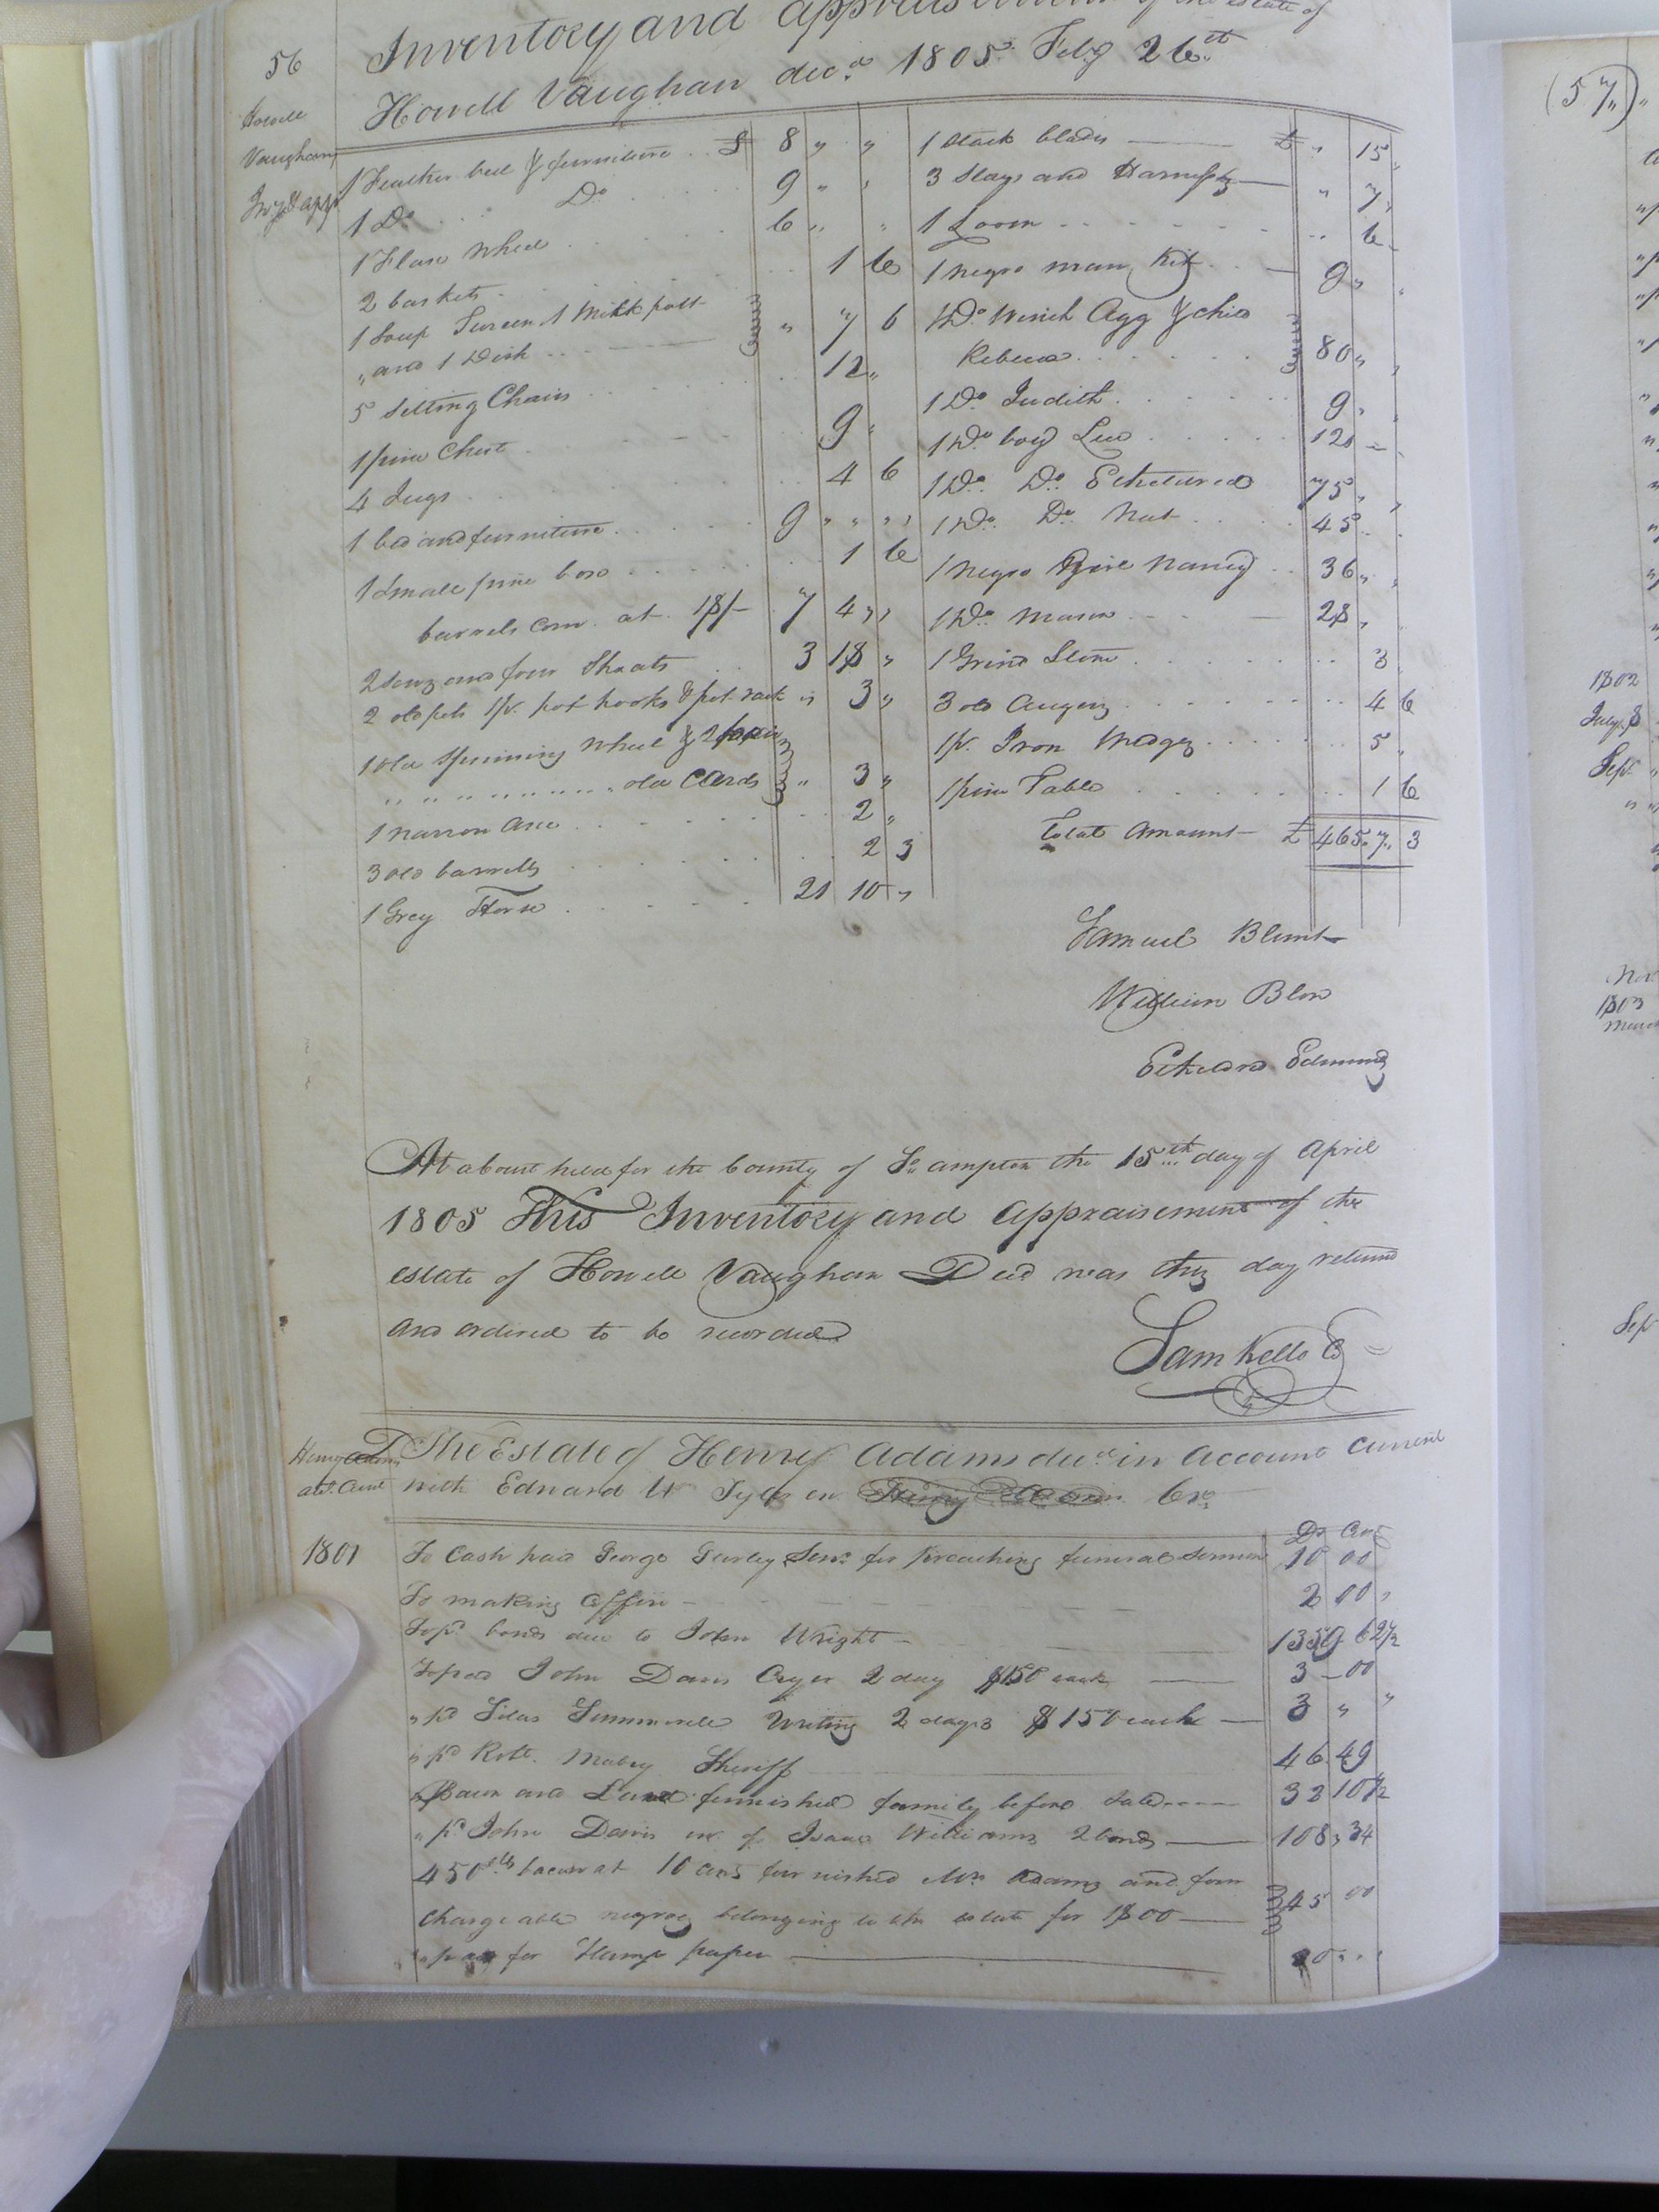 56
Inventory and appraisement of the estate of
Howell Vaughan decd 1805 Feby 26th
Howell
Vaughans
Invy & appt
1 Feather bed & furniture .. £ 8 " "
1 Do . . . Do . . . 9 " "
1 Flax wheel . . . 6 " "
2 baskets . . . 1 6
1 Soup Tureen 1 Milk pott
" and 1 Dish . . . " 7 6
5 Setting Chairs . . . 12 "
1 pine Chest . . . 9 "
4 Jugs . . . 4 6
1 bed and furniture . . . 9 " "
1 Small pine box . . . 1 6
barrels Corn at 18/- 7 4 "
2 Sows and four Shoats . . 3 18 "
2 old pots 1 pr. pot hooks & pot rack " 3 "
1 old Spinning wheel & 2 pair
" " " " " " " old Cards " 3 "
1 narrow axe . . . 2 "
3 old barrells . . . 2 3
1 Grey Horse . . . 21 10 "
1 Stack blades — £ " 15 "
3 Slays and Harness — " 7 "
1 Loom . . . " 6 "
1 negro man Kit . . — 9 " "
1 Do Wench Agg & chid
Rebecca . . . 80 " "
1 Do Judith . . . 9 " "
1 Do boy Lew . . . 120 —
1 Do Do Ethelured 75 " "
1 Do Do Nat . . . 45 . .
1 negro Girl Nancy . . 36 " "
1 Do Mason . . — 28 "
1 Grind Stone . . . 3
3 old Augers . . . 4 6
1 pr. Iron Wedges . . . 5 "
1 pine Table . . . 1 6
Total Amount — £ 465 " 7 " 3
Samuel Blunt
William Blow
Etheldred Edmunds
At a bourt held for the County of So ampton the 15th day of April
1805 This Inventory and Appraisement of the
estate of Howell Vaughan Decd was this day returnd
and ordered to be recorded
Sam Kello C
Henry Adams
act. Curt
The Estate of Henry Adams decd in Account Current
with Edward W Tyler Exr
Ds Cns
1801 To Cash paid George Gurley Senr for preaching funeral sermon 10 00
To making Coffin — 2 00 "
To pd bonds due to John Wright — 1359 62 1/2
To paid John Davis Cryer 2 day $150 each — 3 — 00
" pd Silas Summerell Writing 2 days $150 each — 3 " "
" pd Robt. Mabry Sheriff 46 49
" Bacon and furnished family before Sale ---- 32 10 1/2
" pd John Davis exr of Isaac Williams 2 bonds — 108 " 34
450 lbs bacon at 10 cens furnished Mrs Adams and four
Chargeable negroes belonging to the estate for 1800 — 45 00
" paid for Stamp paper —
(57)
1802
July 8
Sepr
1803
March
Sepr